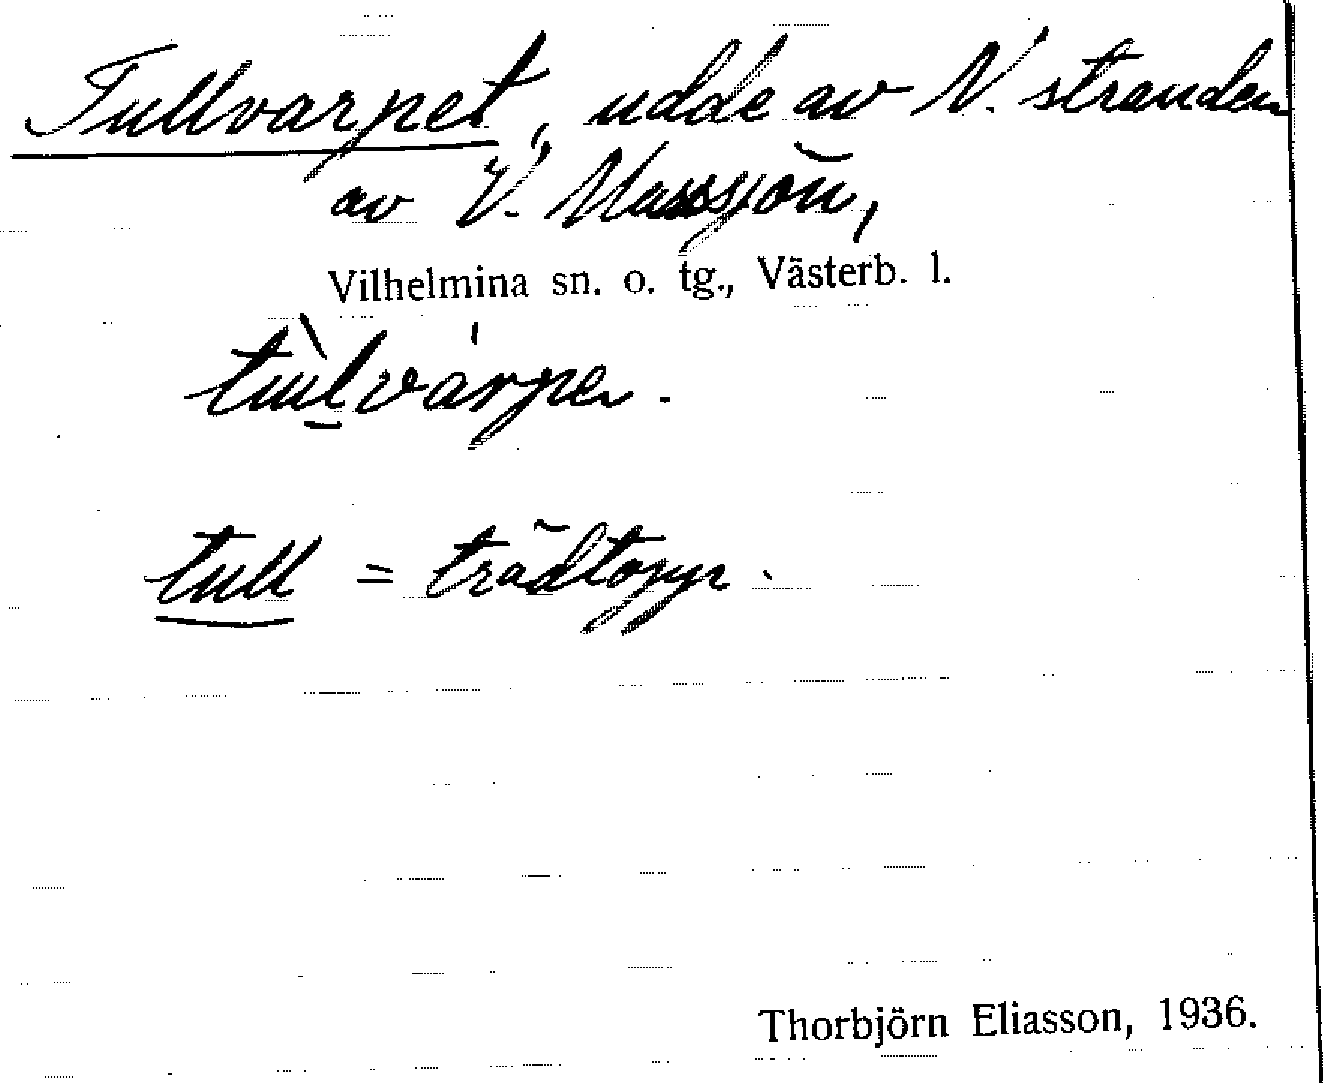 Tullvarpet, udde av N. stranden
av V. Marssjön,
Vilhelmina sn. o. tg., Västerb. l.
tùl̠várpe.
tull = trädtopp.
Thorbjörn Eliasson, 1936.